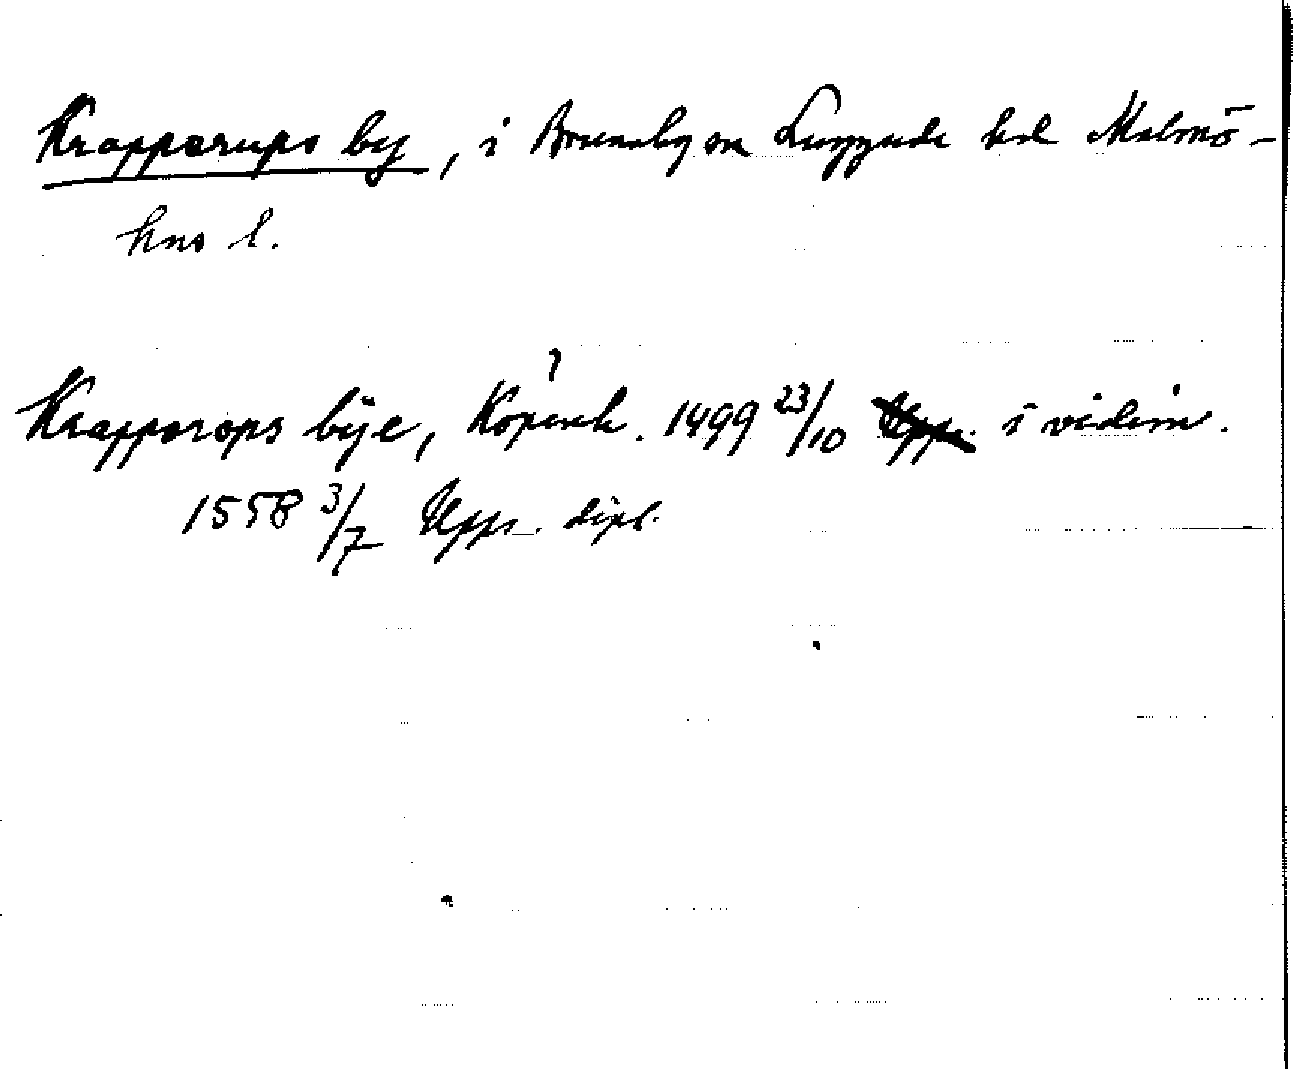 Krapperups by, i Brunnby sn Luggude hd Malmö-
hus l.
Krapperops bÿe, Köpenh. 1499 23/10 Upps. i vidim.
1558 3/7 Upps. dipl.